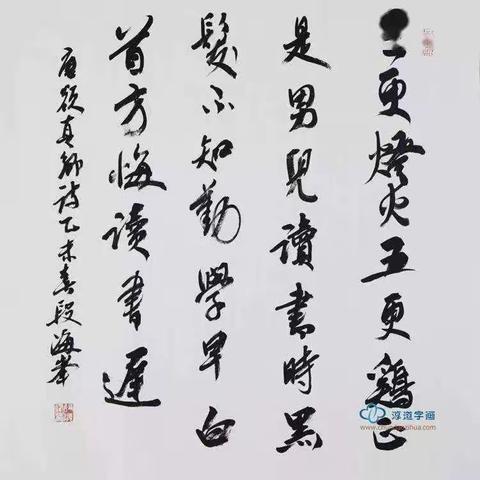 三更燈火五更鷄正
是男兒讀書時黑
髮不知勤學早白
首方悔读書遲
唐顔真卿詩乙未春段海峯
淳道字画